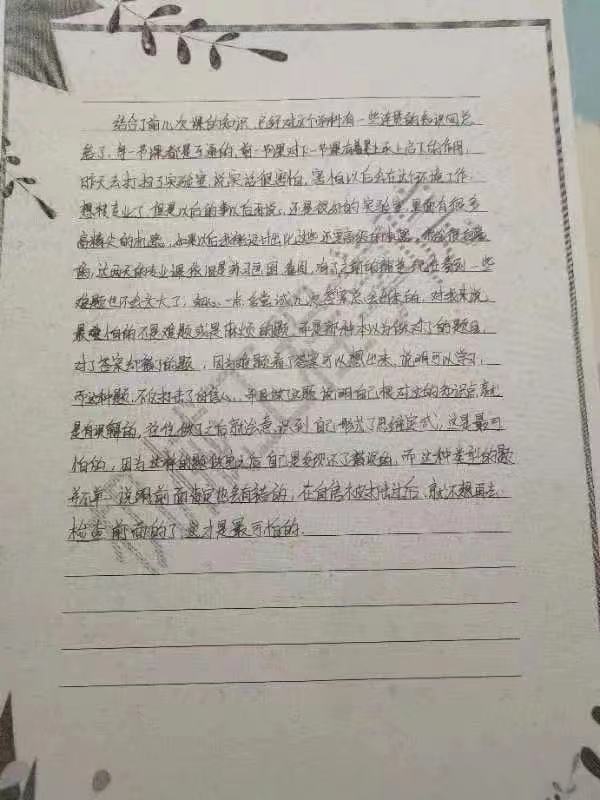 结合了前几次课的知识,已经对这个学科有一些连贯的知识回忆
了,每一节课都是互通的,前一节课对下一节课有着承上启下的作用,
昨天去打扫了实验室,说实话很害怕,害怕以后会在这个环境工作
想转专业了,但是以后的事以后再说,还是很好的实验室,里面有很多
高精尖的仪器,如果以后我能设计出比这些还要高级的
这两天的专业课依旧是补习画图,看图,有了之前的,现在看到一些
难题也不会太大了,细心一点去尝试几次答案总会出来的,对我来说,
最害怕的不是难题或是麻烦的题,而是那种本以为你对了的题目,
对了答案却错了的题,因为难题看了答案可以想出来,说明可以学习,
而这种题,不仅打击了自信心,并且做了这题,说明自己根对这的知识点就
是有误解的,往往做了之后就会意识到自己形成了思维定式,这是最可
怕的,因为这样的题做完之后自己是发现不了错误的,而这种类型的题
并不单一,说明前面肯定也会有错的,在自信心被打击过后,就不想再去
检查前面的了,这才是最可怕的.